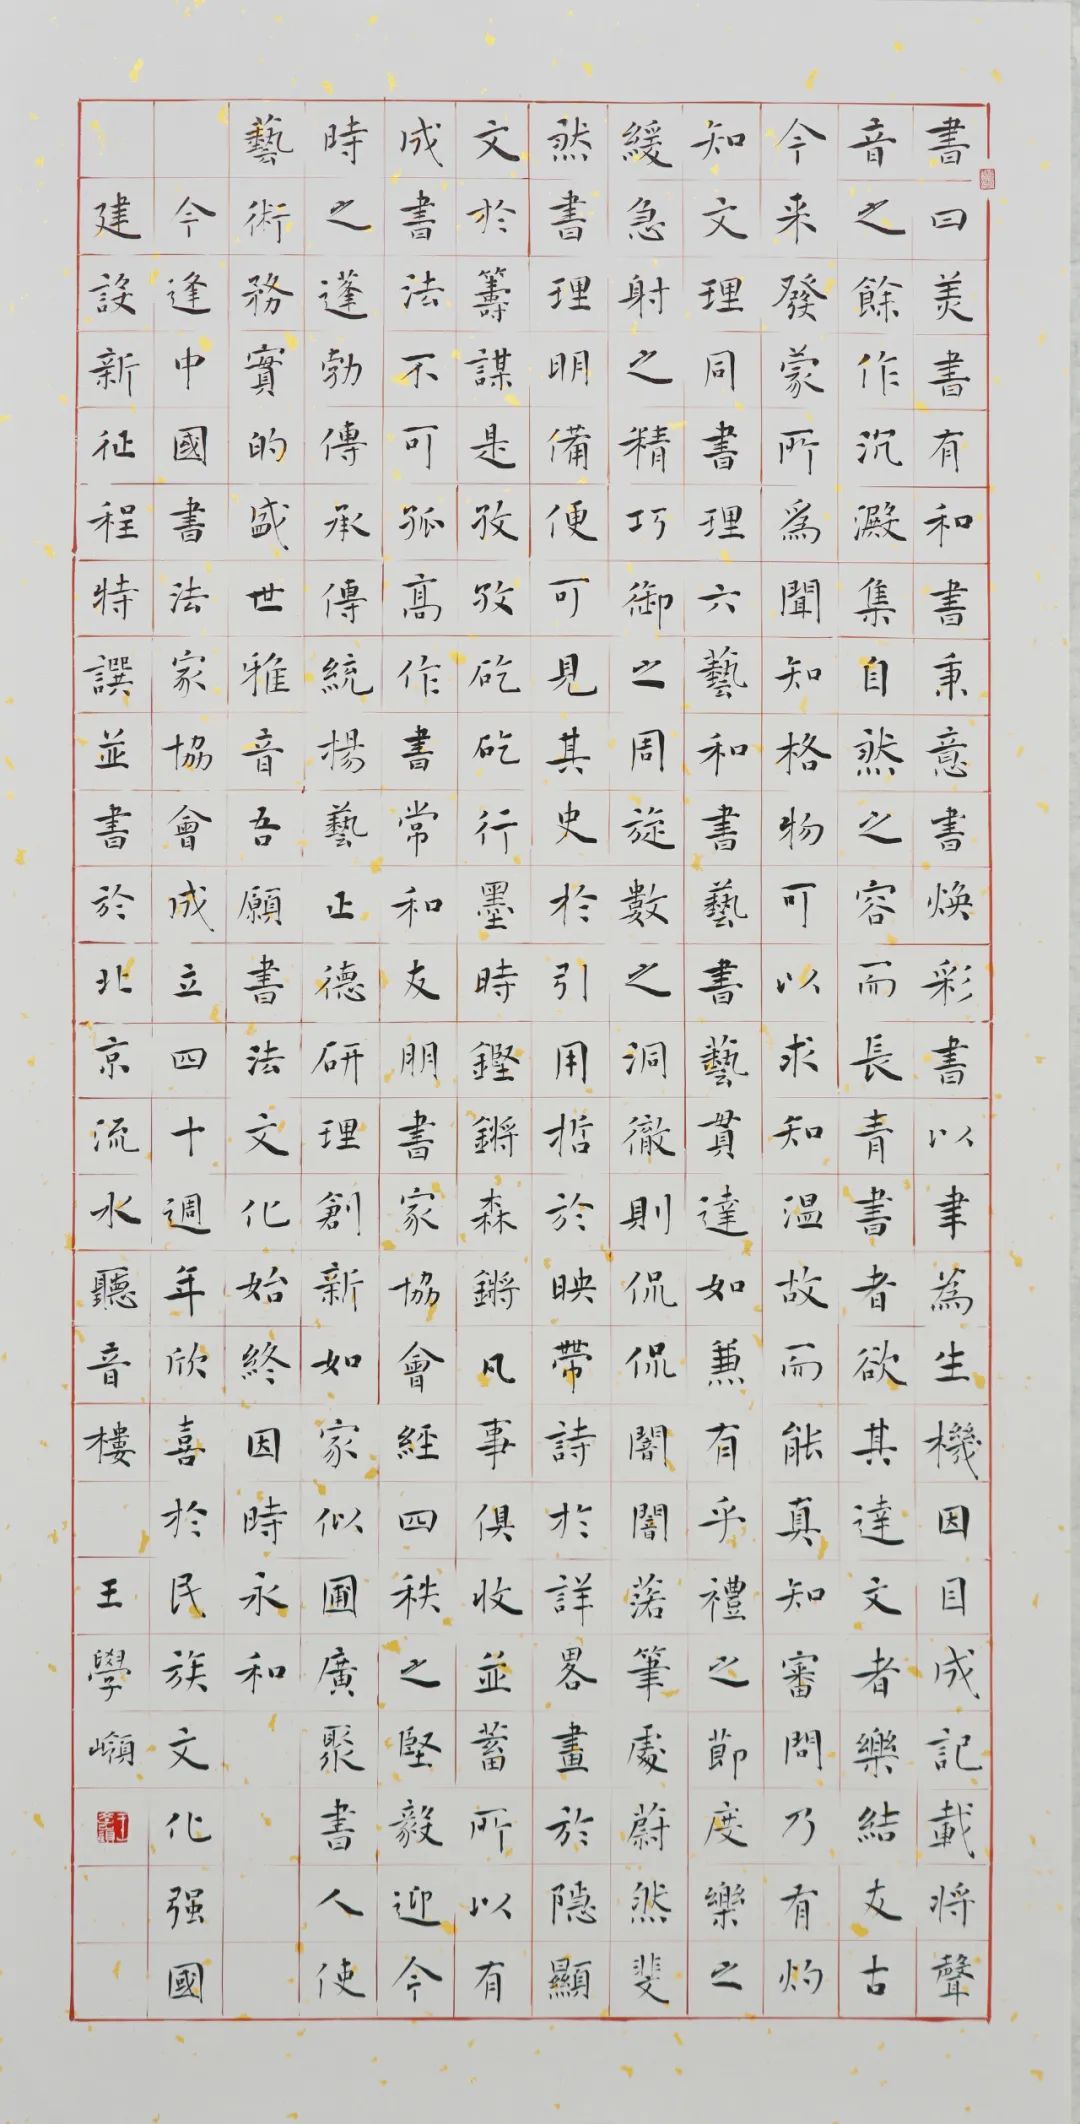 書曰美書有和書秉意書煥彩書以聿為生機因目成記載將聲
音之餘作沉澱集自然之容而長青書者欲其達文者樂結友古
今来發蒙所為聞知格物可以求知温故而能真知審問乃有灼
知文理同書理六藝和書藝書藝貫達如兼有乎禮之節度樂之
緩急射之精巧御之周旋數之洞徹則侃侃誾誾落筆處蔚然斐
然書理明備便可見其史於引用哲於映帶詩於詳畧畫於隱顯
文於籌謀是孜孜矻矻行墨時鏗鏘森鏘凡事俱收並蓄所以有
成書法不可孤高作書常和友朋書家協會經四秩之堅毅迎今
時之蓬勃傳承傳統揚藝正德研理創新如家似圃廣聚書人使
藝術務實的盛世雅音吾願書法文化始終因時永和
今逢中國書法家協會成立四十週年欣喜於民族文化强國
建設新征程特譔並書於北京流水聽音樓 王學嶺